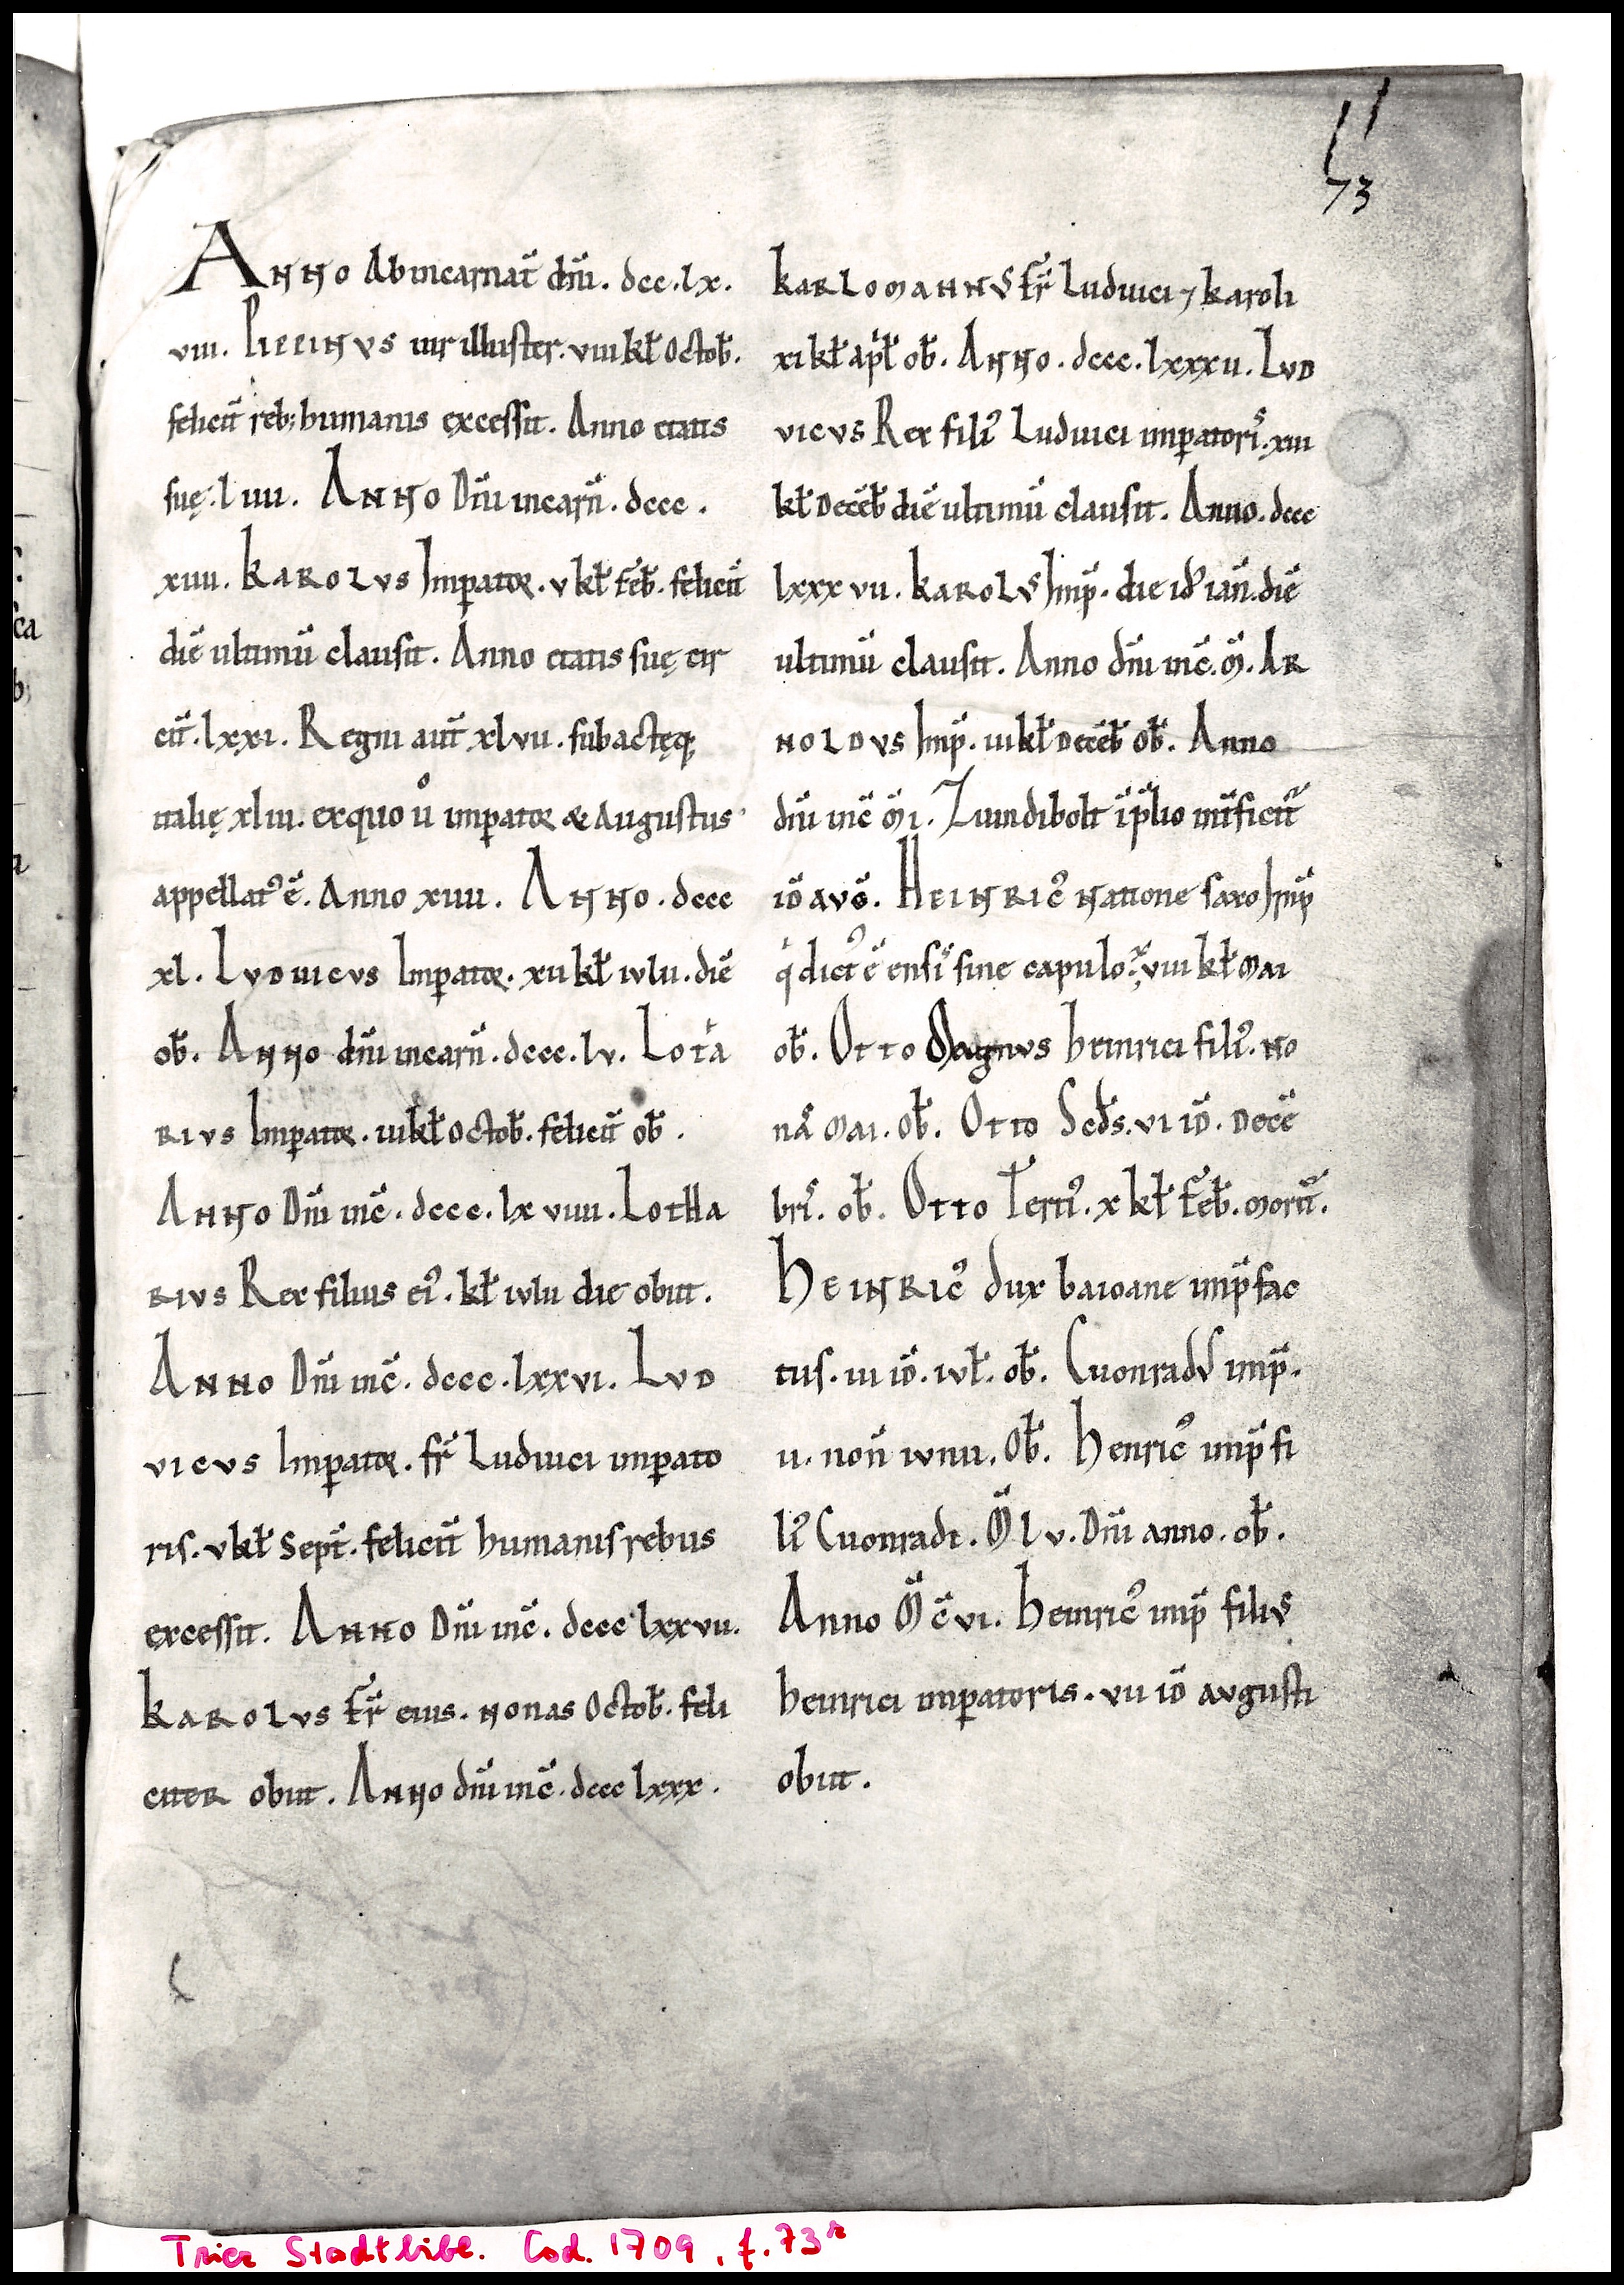 73
Anno Ab incarnat̄ dn̄i. dcc.lx.
viii. Pippinvs uir illuster. viii kƚ Octob̄.
felicit̄ reb; humanis excessit. Anno etatis
suę. liiii. Anno Dn̄i incarn̄. dccc.
xiiii. Karolvs Imꝑator. v kƚ feb̄. felicit̄
diē ultimū clausit. Anno etatis suę cir
cit̄. lxxi. Regni aut̄ xlvii. subactęq;
italię xliii. ex quo ů imꝑator & Augustus
appellatꝰ ē. Anno xiiii. Anno. dccc
xl. Lvdvicvs Imꝑator. xii kƚ ivlii. diē
ob̄. Anno dn̄i incarn̄. dccc.lv. Lota
rivs Imꝑator. iii kƚ Octob̄. felicit̄ ob̄.
Anno Dn̄i inc̄. dccc.lxviiii. Lotha
rivs Rex filius eiꝰ. kƚ ivlii die obiit.
Anno Dn̄i inc̄. dccc.lxxvi. Lvd
vicvs Imꝑator. fr̄ Ludiuci imꝑato
ris. v kƚ Sept̄. felicit̄ humanis rebus
excessit. Anno Dn̄i inc̄. dccc lxxvii.
Karolvs fr̄ eius. Nonas Octob̄. feli
citer obiit. Anno dn̄i inc̄. dccc lxxx.
Karlomannvs fr̄ Luduici ⁊ Karoli
xi kƚ apƚ ob̄. Anno. dccc.lxxxii. Lvd
vicvs Rex filiꝰ Luduici imꝑatoris. xiii
kƚ Decēb̄ diē ultimū clausit. Anno. dccc
lxxxvii. Karolvs Imp̄. die id' ian̄. diē
ultimū clausit. Anno dn̄i inc̄. m̄. Ar
noldvs Imp̄. iii kƚ Decēb̄ ob̄. Anno
dn̄i inc̄ m̄i. Zuindibolt ī p̄lio int̄ficit̄
id̄ avḡ. Heinricꝰ Natione saxo Imp̄
q̇ dictꝰ ē ensis sine capulo. viii kƚ Mai
ob̄. Otto Magnvs heinrici filiꝰ. No
nas Mai. Ob̄. Otto Scds. vi id̄. Decē
bris. ob̄. Otto Tertiꝰ. x kƚ feb̄. morit̄.
Heinricꝰ dux baioarie imp̄ fac
tus. iii id̄. ivƚ. ob̄. Cuonradvs imp̄.
ii. non̄ ivnii. Ob̄. Henricꝰ imp̄ fi
liꝰ Cuonradi. M̄ l v. Dn̄i anno. ob̄.
Anno M̄ c̄ vi. Heinricꝰ imp̄ filivs
heinrici imꝑatoris. vii id̄ avgusti
obiit.
Trier Stadtbibl. Cod. 1709, f. 73r